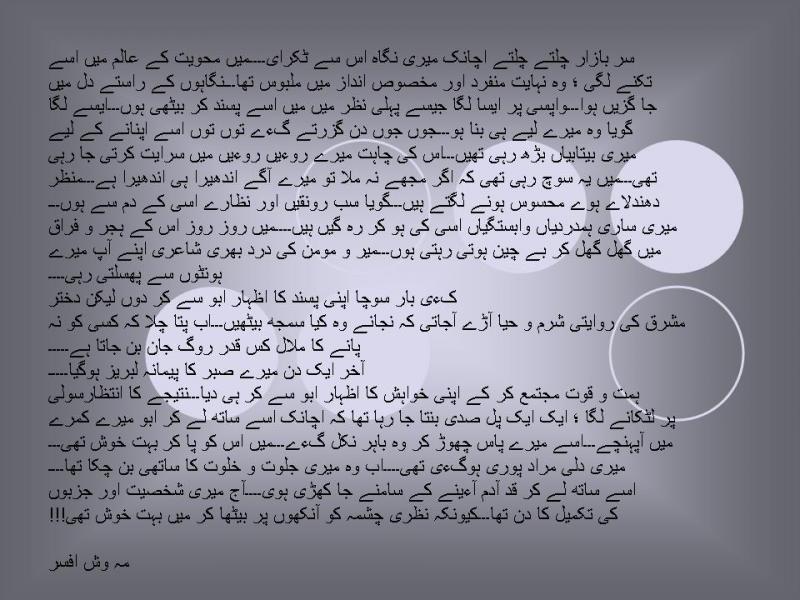 سر بازار چلتے چلتے اچانک میری نگاہ اس سے ٹکرای۔۔۔۔میں محویت کے عالم میں اسے
تکنے لگی ؛ وہ نہایت منفرد اور مخصوص انداز میں ملبوس تھا۔۔۔نگاہوں کے راستے دل میں
جا گزیں ہوا۔۔۔واپسی پر ایسا لگا جیسے پہلی نظر میں میں اسے پسند کر بیٹھی ہوں۔۔۔ایسے لگا
گویا وہ میرے لیے ہی بنا ہو۔۔۔جوں جوں دن گزرتے گءے توں توں اسے اپنانے کے لیے
میری بیتابیاں بڑھ رہی تھیں۔۔۔اس کی چاہت میرے روءیں روءیں میں سرایت کرتی جا رہی
تھی۔۔۔میں یہ سوچ رہی تھی کہ اگر مجھے نہ ملا تو میرے آگے اندھیرا ہی اندھیرا ہے۔۔۔منظر
دھندلاے ہوے محسوس ہونے لگتے ہیں۔۔۔گویا سب رونقیں اور نظارے اسی کے دم سے ہوں۔۔۔
میری ساری ہمدردیاں وابستگیاں اسی کی ہو کر رہ گیں ہیں۔۔۔۔میں روز روز اس کے ہجر و فراق
میں گھل گھل کر بے چین ہوتی رہتی ہوں۔۔۔میر و مومن کی درد بھری شاعری اپنے آپ میرے
ہونٹوں سے پھسلتی رہی۔۔۔۔
کءی بار سوچا اپنی پسند کا اظہار ابو سے کر دوں لیکن دختر
مشرق کی روایتی شرم و حیا آڑے آجاتی کہ نجانے وہ کیا سمجھ بیٹھیں۔۔۔اب پتا چلا کہ کسی کو نہ
پانے کا ملال کس قدر روگ جان بن جاتا ہے۔۔۔۔۔
آخر ایک دن میرے صبر کا پیمانہ لبریز ہوگیا۔۔۔۔۔
ہمت و قوت مجتمع کر کے اپنی خواہش کا اظہار ابو سے کر ہی دیا۔۔۔نتیجے کا انتظارسولی
پر لٹکانے لگا ؛ ایک ایک پل صدی بنتا جا رہا تھا کہ اچانک اسے ساتھ لے کر ابو میرے کمرے
میں آپہنچے۔۔۔اسے میرے پاس چھوڑ کر وہ باہر نکل گءے۔۔۔میں اس کو پا کر بہت خوش تھی۔۔۔
میری دلی مراد پوری ہوگءی تھی۔۔۔۔اب وہ میری جلوت و خلوت کا ساتھی بن چکا تھا۔۔۔۔
اسے ساتھ لے کر قد آدم آءینے کے سامنے جا کھڑی ہوی۔۔۔۔آج میری شخصیت اور جزبوں
کی تکمیل کا دن تھا۔۔۔کیونکہ نظری چشمہ کو آنکھوں پر بیٹھا کر میں بہت خوش تھی!!!
مہ وش افسر